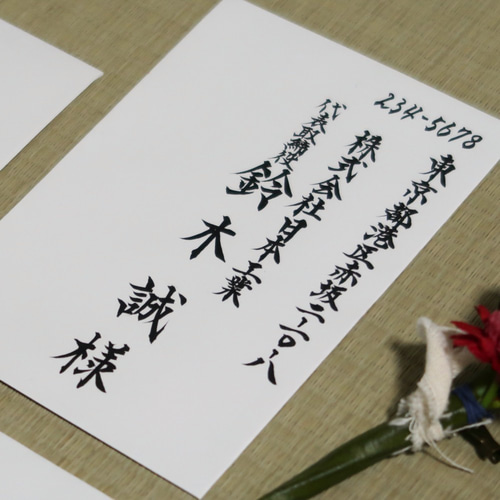 234-5678
東京都港区赤坂二ー一〇ー八
株式会社日本工業
代表取締役
鈴木誠様